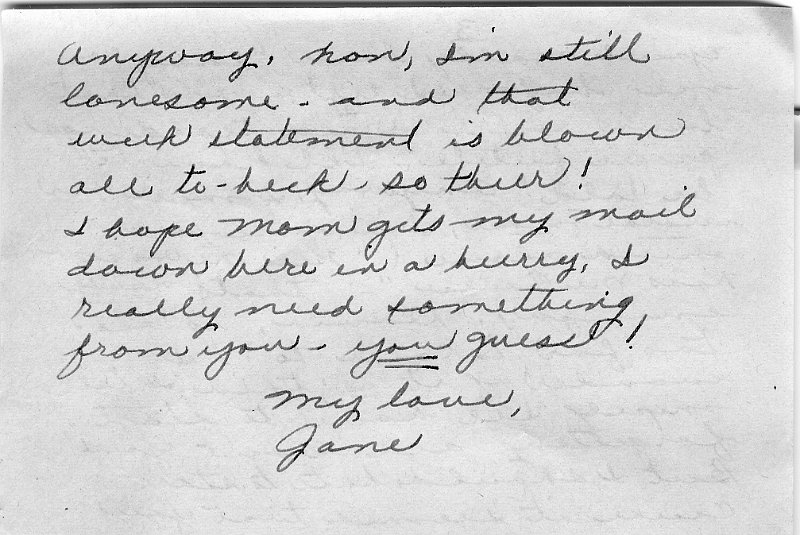 Anyway, hon, I'm still
lonesome - and that
week statement is blown
all to-heck - so there!
I hope Mom gets my mail
down here in a hurry, I
really need something
from you - you guess!
My love,
Jane